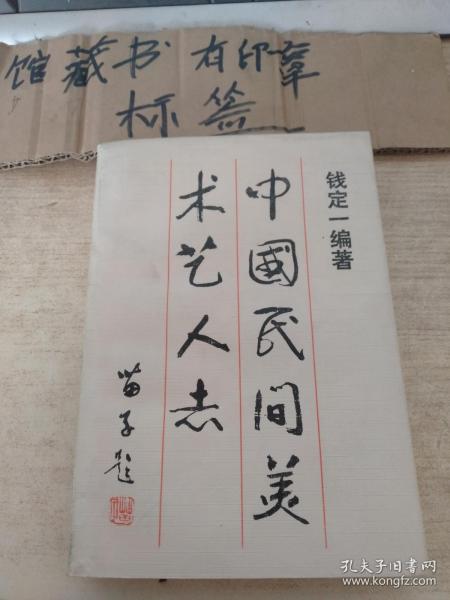 馆藏书 有印章
标签
钱定一编著
中國民间美
术艺人志
苗子题
孔夫子旧书网
www.kongfz.com